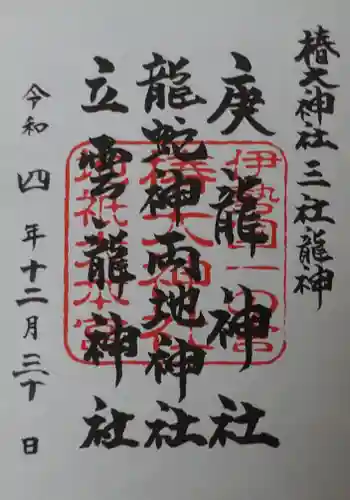 椿大神社 三社龍神
庚龍神社
龍蛇神両地神社
立雲龍神社
令和四年十二月三十日
伊勢国一の宮